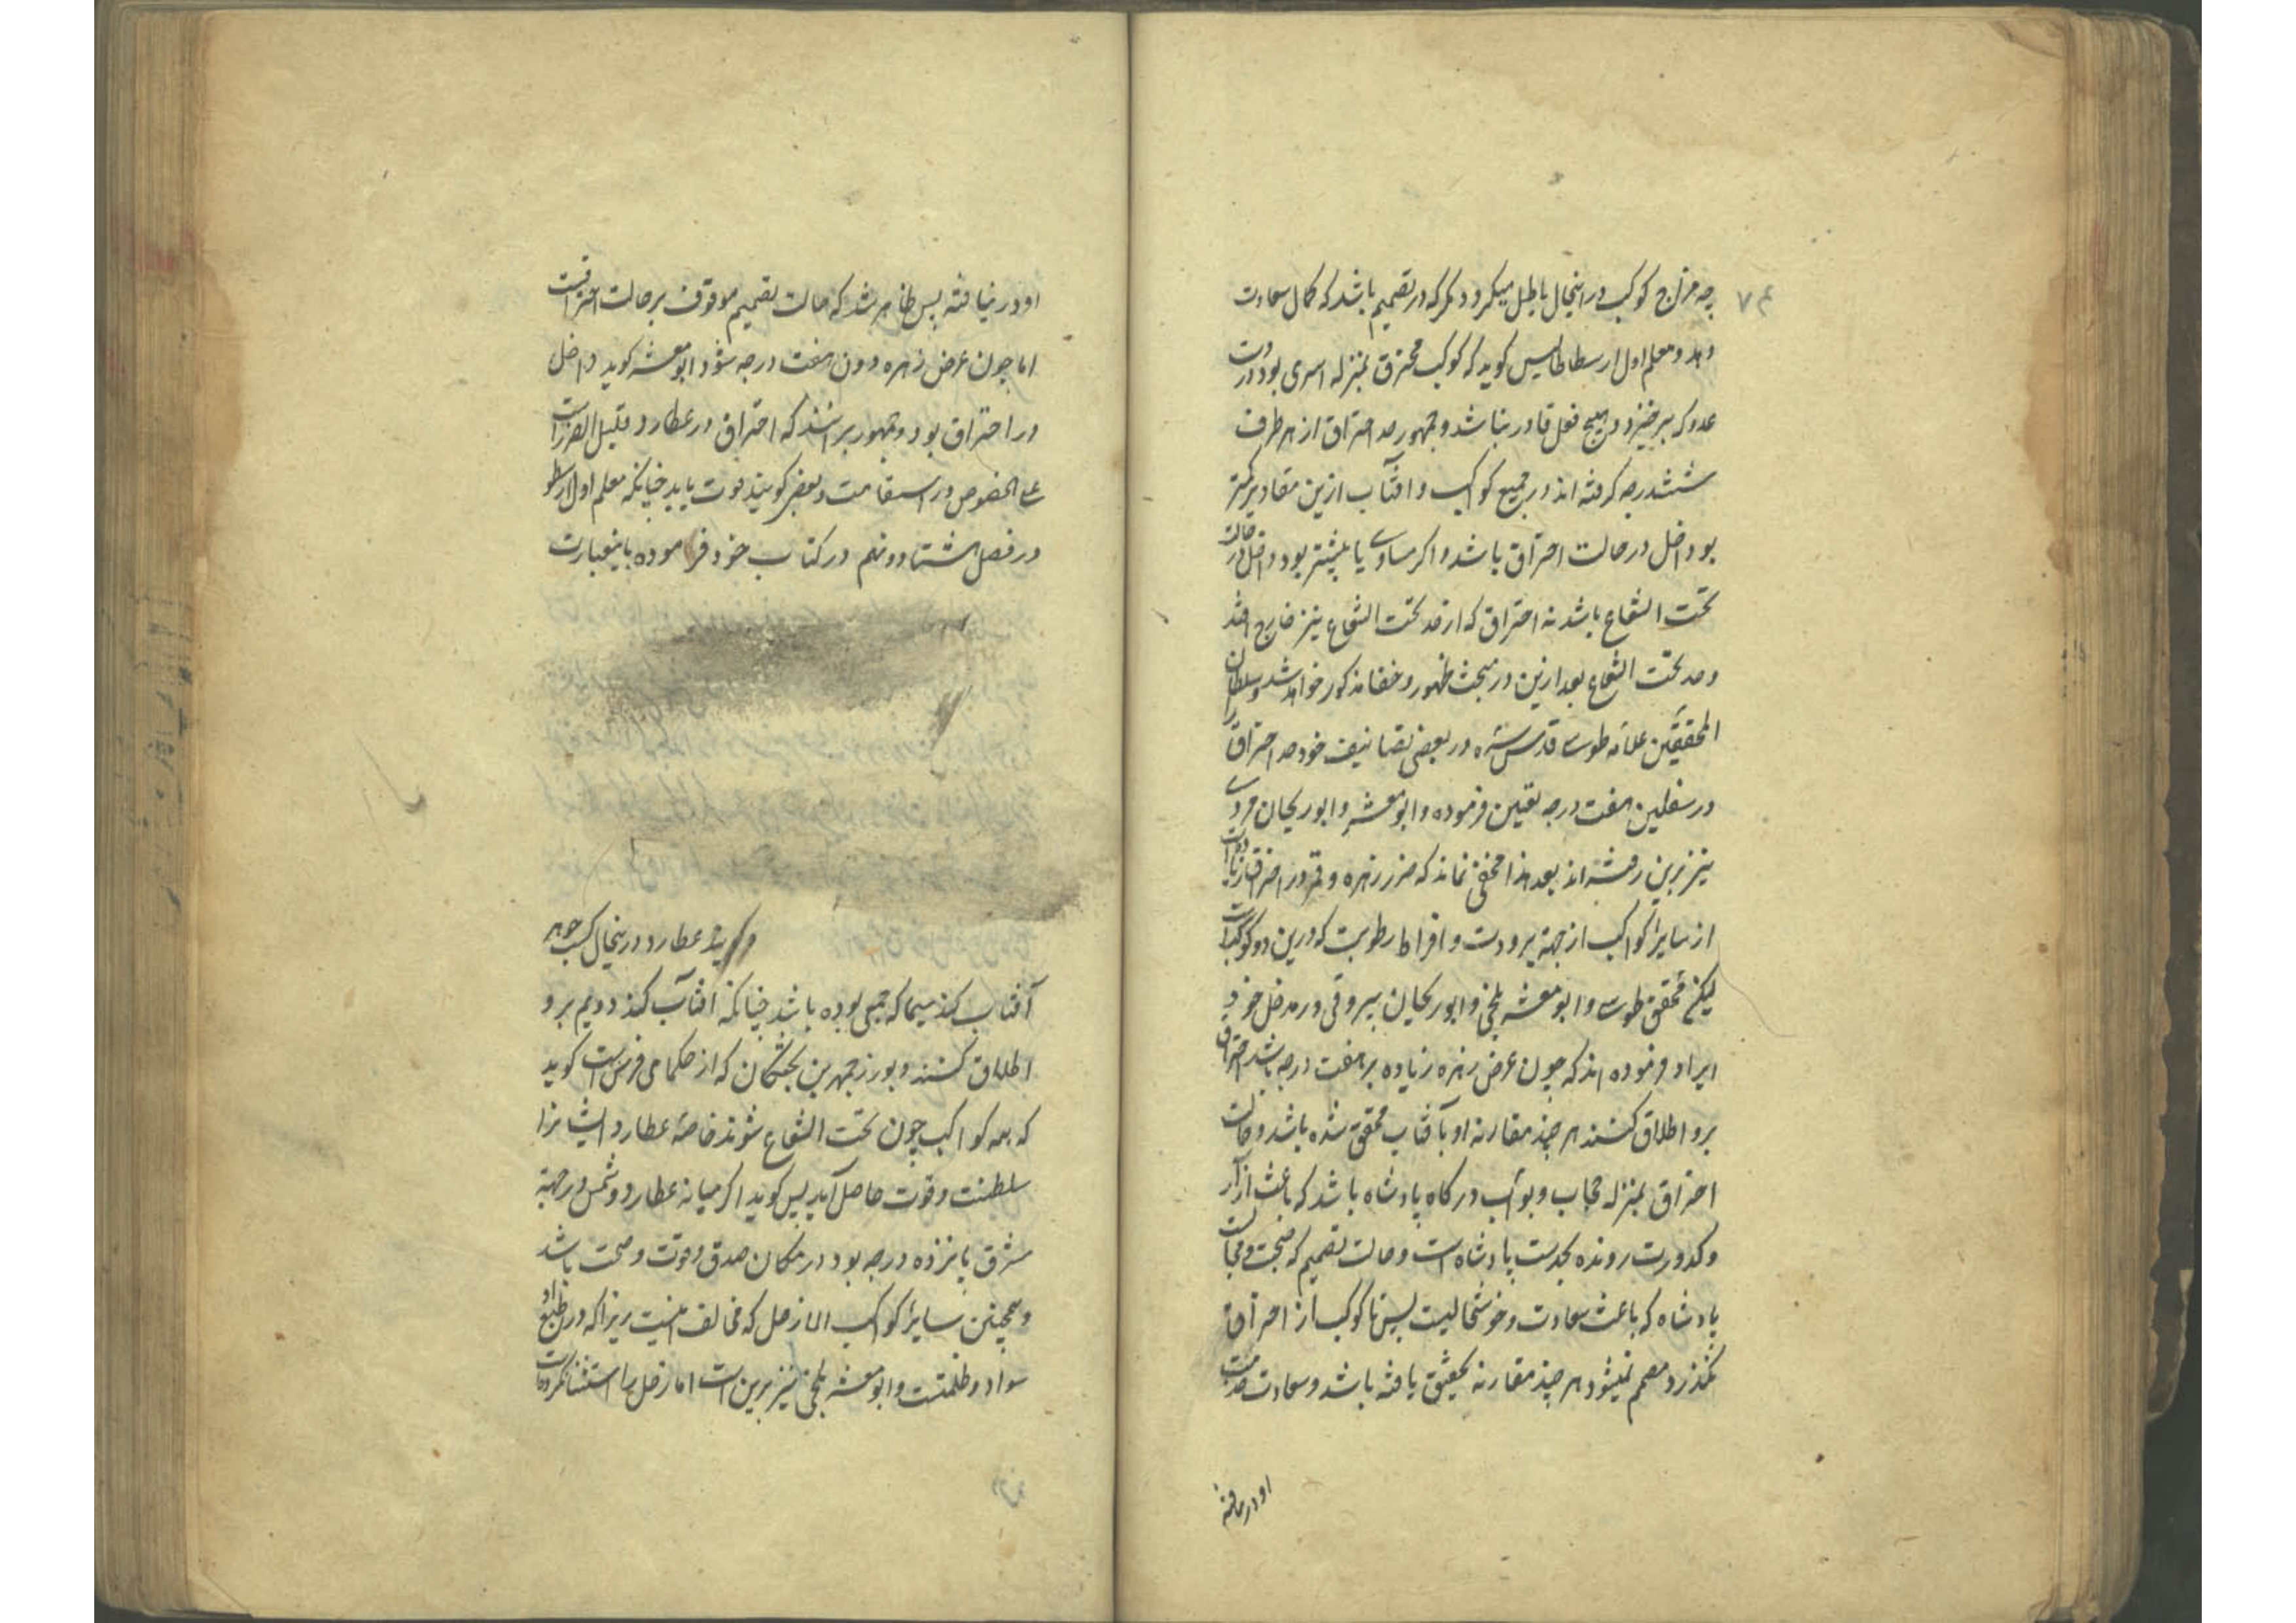 چه مزاج کوکب درینحال باطل میکردد مکر که در تصمیم باشد که کمال سعادت
دهد و معلم اول ارسطاطالیس کوید که کوکب محترق بمنزله اسیری بود در دست
عدو که بر خیر و هیچ فعل قادر نباشد و جمهور حد احتراق از هر طرف
ششدرجه کرفته اند در جمیع کواکب و افتاب ازین مقادیر کمتر
بود داخل در حالت احتراق باشد و اکر مساوی یا بیشتر بود داخل در حالت
تحت الشعاع باشد نه احتراق که از حد تحت الشعاع نیز خارج افتد
و حد تحت الشعاع بعد ازین در مبحث ظهور و خفا مذکور خواهد شد و سلطان
المحققین علامه طوسی قدس سره در بعضی تصانیف خود حد احتراق را
در سفلین هفت درجه تعین فرموده و ابو معشر و ابوریحان مروی
نیز برین رفته اند بعد هذا مخفی نماند که ضرر زهره و قمر در احتراق زیاده است
از سایر کواکب از جهة برودت و افراط رطوبت که درین دو کوکب است
لیکن محقق طوسی و ابو معشر بلخی و ابوریحان بیرونی در مدخل خود
ایراد فرموده اند که چون عرض زهره زیاده بر هفت درجه باشد احتراق
برو اطلاق نکنند هر چند مقارنه او بآفتاب محقق شده باشد و حالت
احتراق بمنزله حجاب و بواب درکاه پادشاه باشد که باعث آزار
و کدورت رونده بخدمت پادشاه است و حالت تصمیم که صحبت و مجالست
پادشاه که باعث سعادت و خوشحالیست پس تا کوکب از احتراق
نکذرد مصمم نمیشود هر چند مقارنه تحقیق یافته باشد و سعادت خدمت
او در نیافته
او در نیافته پس ظاهر شد که حالت تصمیم موقوف بر حالت احتراقست
اما چون عرض زهره دون هفت درجه شود ابو معشر کوید داخل
در احتراق بود و جمهور بر انند که احتراق در عطارد قلیل الضرر است
علی الخصوص در استقامت و بعضی کویند قوت یابد چنانکه معلم اول ارسطو
در فصل هشتاد و نهم در کتاب خود فرموده باینعبارت
عطارد درینحال کسب جوهر
آفتاب کند سیما که جمعی بوده باشد چنانکه افتاب کند دویم برو
اطلاق کنند و بوزرجمهر بن بختکان که از حکمای فرس است کوید
که همه کواکب چون تحت الشعاع شوند خاصه عطارد ایشانرا
سلطنت و قوت حاصل آید پس کوید اکر میانه عطارد و شمس در جهة
مشرق پانزده درجه بود در مکان صدق و قوت و صحت باشد
و همچنین سایر کواکب الا زحل که مخالف اینست زیرا که در طبع او
سواد و ظلمتست و ابو معشر بلخی نیز برین است اما زحل را استثنا نکرده است